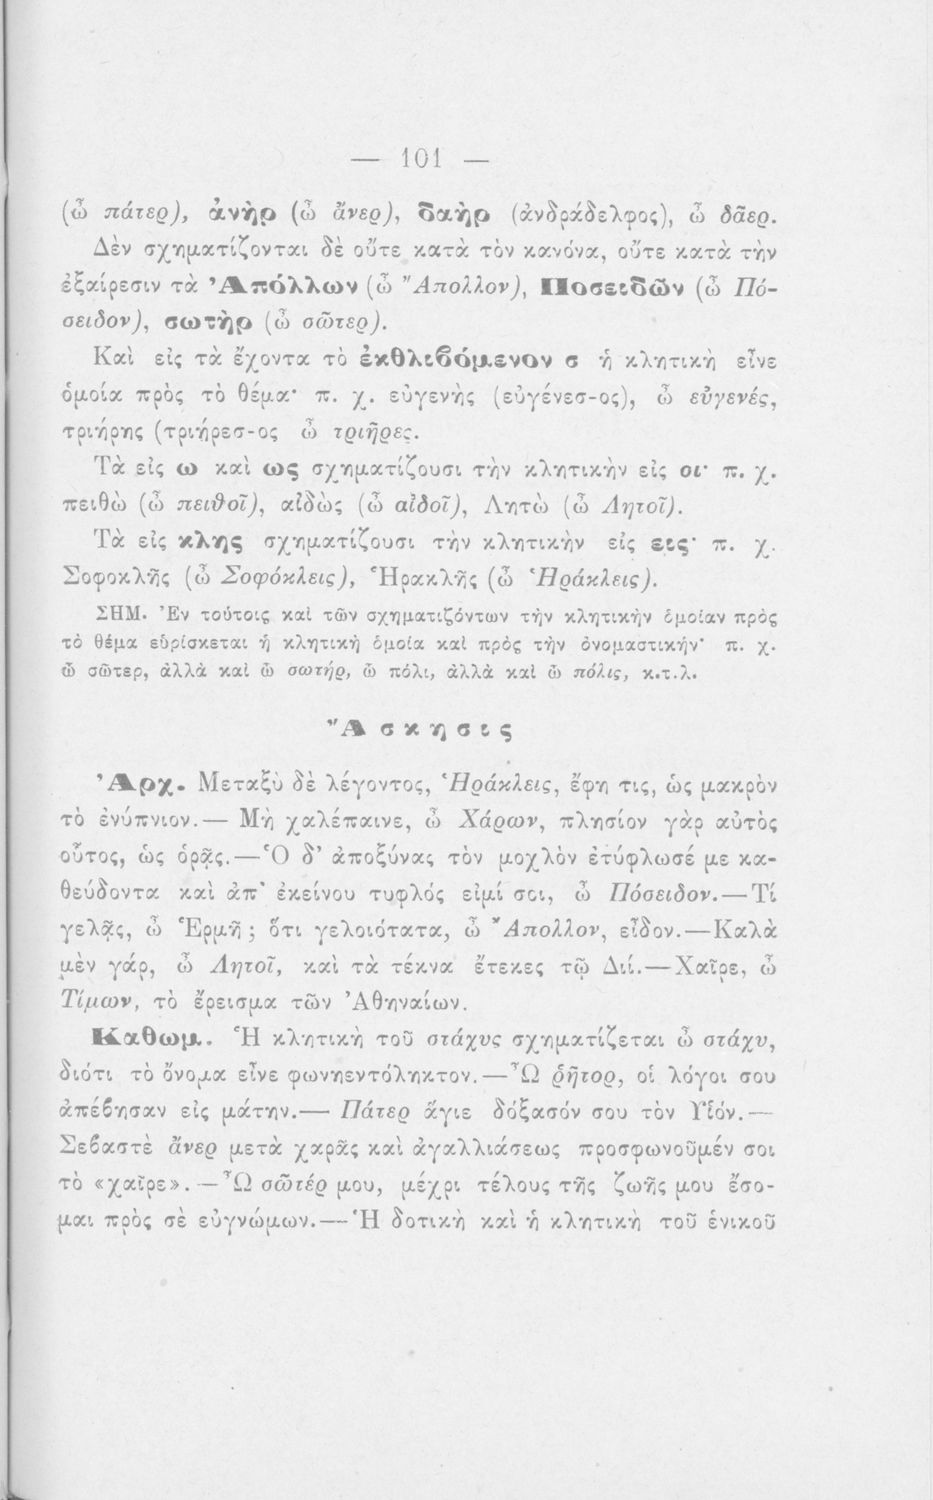 — 101 —
(ὦ πάτερ), ἀνὴρ (ὦ ἄνερ), δαὴρ (ἀνδράδελφος), ὦ δᾶερ.
Δὲν σχηματίζονται δὲ οὔτε κατὰ τὸν κανόνα, οὔτε κατὰ τὴν
ἐξαίρεσιν τὰ Ἀπόλλων (ὦ Ἄπολλον), Ποσειδῶν (ὦ Πό-
σειδον), σωτὴρ (ὦ σῶτερ).
Καὶ εἰς τὰ ἔχοντα τὸ ἐκθλιβόμενον σ ἡ κλητικὴ εἶνε
ὁμοία πρὸς τὸ θέμα· π. χ. εὐγενὴς (εὐγένεσ-ος), ὦ εὐγενές,
τριήρης (τριήρεσ-ος ὦ τριῆρες.
Τὰ εἰς ω καὶ ως σχηματίζουσι τὴν κλητικὴν εἰς οι· π. χ.
πειθὼ (ὦ πειθοῖ), αἰδὼς (ὦ αἰδοῖ), Λητὼ (ὦ Λητοῖ).
Τὰ εἰς κλης σχηματίζουσι τὴν κλητικὴν εἰς εις· π. χ.
Σοφοκλῆς (ὦ Σοφόκλεις), Ἡρακλῆς (ὦ Ἡράκλεις).
ΣΗΜ. Ἐν τούτοις καὶ τῶν σχηματιζόντων τὴν κλητικὴν ὁμοίαν πρὸς
τὸ θέμα εὑρίσκεται ἡ κλητικὴ ὁμοία καὶ πρὸς τὴν ὀνομαστικήν· π. χ.
ὦ σῶτερ, ἀλλὰ καὶ ὦ σωτήρ, ὦ πόλι, ἀλλὰ καὶ ὦ πόλις, κ.τ.λ.
Ἄσκησις
Ἀρχ. Μεταξὺ δὲ λέγοντος, Ἡράκλεις, ἔφη τις, ὡς μακρὸν
τὸ ἐνύπνιον.— Μὴ χαλέπαινε, ὦ Χάρων, πλησίον γὰρ αὐτὸς
οὗτος, ὡς ὁρᾷς.—Ὁ δ' ἀποξύνας τὸν μοχλὸν ἐτύφλωσέ με κα-
θεύδοντα καὶ ἀπ' ἐκείνου τυφλός εἰμί σοι, ὦ Πόσειδον.—Τί
γελᾷς, ὦ Ἑρμῆ; ὅτι γελοιότατα, ὦ Ἄπολλον, εἶδον.—Καλὰ
μὲν γάρ, ὦ Λητοῖ, καὶ τὰ τέκνα ἔτεκες τῷ Διΐ.—Χαῖρε, ὦ
Τίμων, τὸ ἔρεισμα τῶν Ἀθηναίων.
Καθωμ. Ἡ κλητικὴ τοῦ στάχυς σχηματίζεται ὦ στάχυ,
διότι τὸ ὄνομα εἶνε φωνηεντόληκτον.—Ὦ ῥῆτορ, οἱ λόγοι σου
ἀπέβησαν εἰς μάτην.— Πάτερ ἅγιε δόξασόν σου τὸν Υἱόν.—
Σεβαστὲ ἄνερ μετὰ χαρᾶς καὶ ἀγαλλιάσεως προσφωνοῦμέν σοι
τὸ «χαῖρε».—Ὦ σῶτέρ μου, μέχρι τέλους τῆς ζωῆς μου ἔσο-
μαι πρὸς σὲ εὐγνώμων.—Ἡ δοτικὴ καὶ ἡ κλητικὴ τοῦ ἑνικοῦ